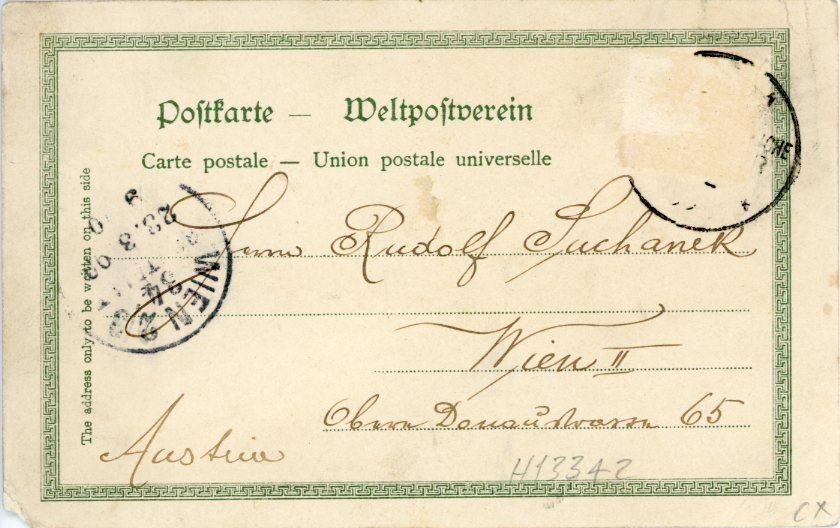 Postkarte — Weltpostverein
Carte postale — Union postale universelle
Herrn Rudolf Suchanek
Wien II
Obere Donaustrasse 65
Austria
The address only to be written on this side
WIEN 2
23. 3
H13342
CX